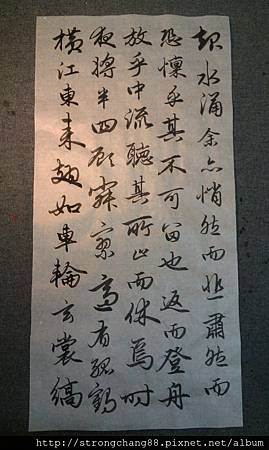 起水涌余亦悄然而悲肅然而
恐懍乎其不可留也返而登舟
放乎中流聽其所止而休焉時
夜將半四顧寂寥適有孤鶴
橫江東來翅如車輪玄裳縞
http://strongchang88.pixnet.net/album